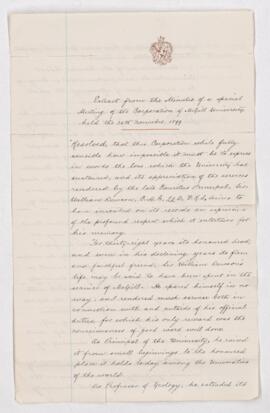 Extract from the Minutes of a special
Meeting of the Corporation of McGill University
held the 20th November, 1899
Resolved, that this Corporation while fully
sensible how impossible it must be to express
in words the loss which the University has
sustained, and its appreciation of the services
rendered by the late Emeritus Principal, Sir
William Dawson, C.M.G., LL.D., F.R.S., desires to
have inscribed on its records an expression
of the profound respect which it entertains for
his memory.
For thirty-eight years its honoured head,
and even in his declining years its firm
and faithful friend, Sir William Dawson's
life may be said to have been spent in the
service of McGill. He spared himself in no
way, and rendered much service both in
connection with and outside of his official
duties for which his only reward was the
consciousness of good work well done.
As Principal of the University, he raised
it from small beginnings to the honoured
place it holds today among the Universities
of the world.
As Professor of Geology, he extended its